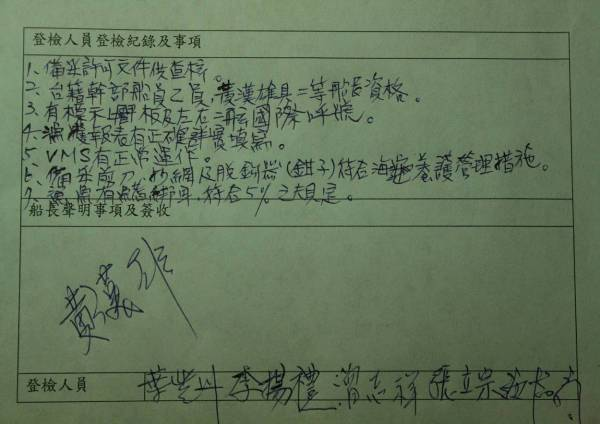 登檢人員登檢紀錄及事項
1、備妥許可文件供查核。
2、台籍幹部船員乙員,黃漢雄具二等船長資格。
3、有標示船板及左右二舷國際呼號。
4、漁獲報表有正確詳實填寫。
5、VMS有正常運作。
6、備妥剪刀、抄網及脫鉤器(鉗子)符合海龜養護管理措施。
7、鯊魚有綁,符合5%之規定。
船長聲明事項及簽收
黃
登檢人員 李揚禮 志祥 張立宗